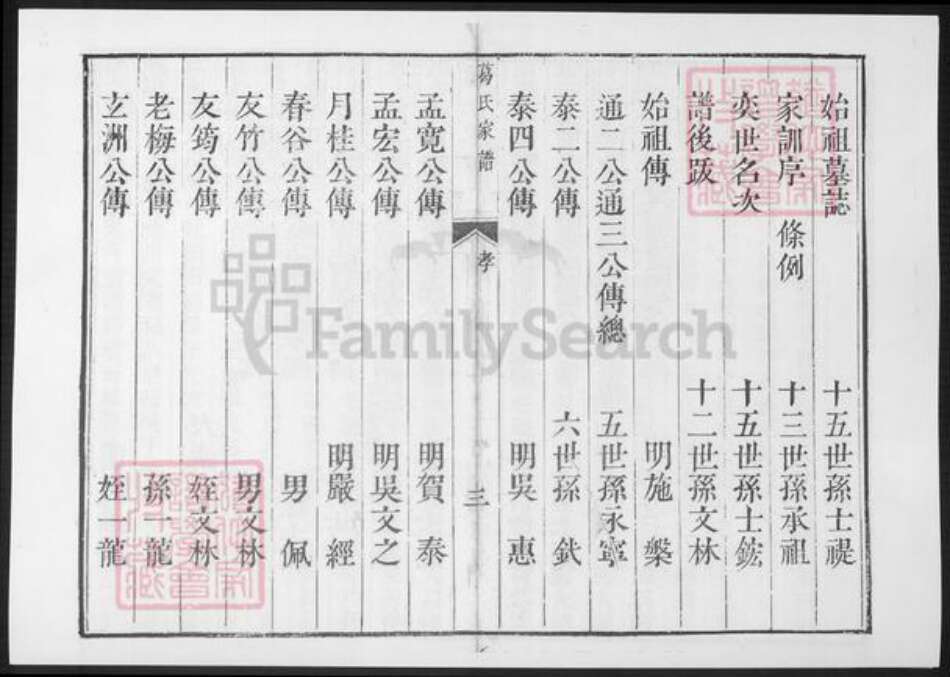 始祖墓誌 十五世孫士禔
家訓序 條例 十三世孫承祖
奕世名次 十五世孫士鋐
譜後跋 十二世孫文林
始祖傳 明施槃
通二公通三公傳總 五世孫永寧
泰二公傳 六世孫釴
泰四公傳 明吳惠
葛氏家譜 孝 三
孟寬公傳 明賀泰
孟宏公傳 明吳文之
月桂公傳 明嚴經
春谷公傳 男佩
友竹公傳 男文林
友筠公傳 姪文林
老梅公傳 孫一龍
玄洲公傳 姪一龍
FamilySearch